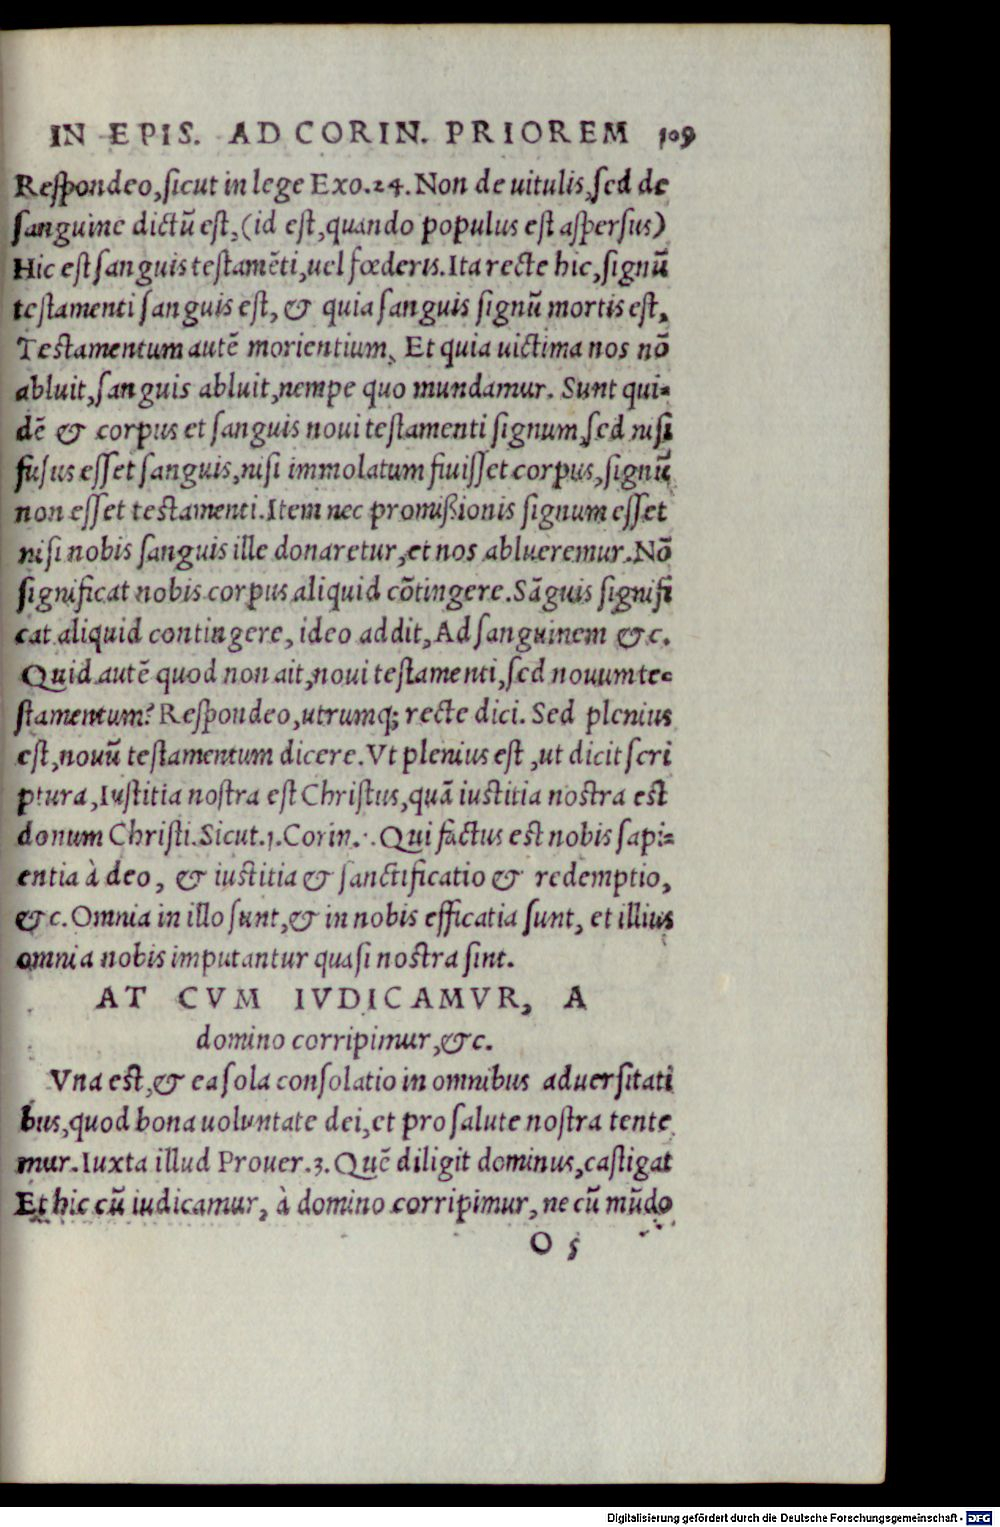 IN EPIS. AD CORIN. PRIOREM 109
Respondeo,sicut in lege Exo.24.Non de uitulis,sed de
sanguine dictũ est,(id est,quando populus est aspersus)
Hic est sanguis testamẽti,uel fœderis.Ita recte hic,signũ
testamenti sanguis est, & quia sanguis signũ mortis est,
Testamentum autẽ morientium, Et quia uictima nos nõ
abluit,sanguis abluit,nempe quo mundamur. Sunt qui-
dẽ & corpus et sanguis noui testamenti signum,sed nisi
fusus esset sanguis,nisi immolatum fuisset corpus,signũ
non esset testamenti.Item nec promißionis signum esset
nisi nobis sanguis ille donaretur,et nos ablueremur.Nõ
significat nobis corpus aliquid cõtingere.Sãguis signifi
cat aliquid contingere, ideo addit,Ad sanguinem &c.
Quid autẽ quod non ait,noui testamenti,sed nouum te-
stamentum? Respondeo,utrumq; recte dici. Sed plenius
est,nouũ testamentum dicere.Vt plenius est ,ut dicit scri
ptura,Iustitia nostra est Christus,quã iustitia nostra est
donum Christi.Sicut.1.Corin. Qui factus est nobis sapi-
entia à deo, & iustitia & sanctificatio & redemptio,
&c.Omnia in illo sunt,& in nobis efficatia sunt, et illius
omnia nobis imputantur quasi nostra sint.
AT CVM IVDICAMVR, A
domino corripimur,&c.
Vna est,& ea sola consolatio in omnibus aduersitati
bus,quod bona uoluntate dei,et pro salute nostra tente
mur.Iuxta illud Prouer.3.Quẽ diligit dominus,castigat
Et hic cũ iudicamur, à domino corripimur, ne cũ mũdo
O 5
Digitalisierung gefördert durch die Deutsche Forschungsgemeinschaft - DFG